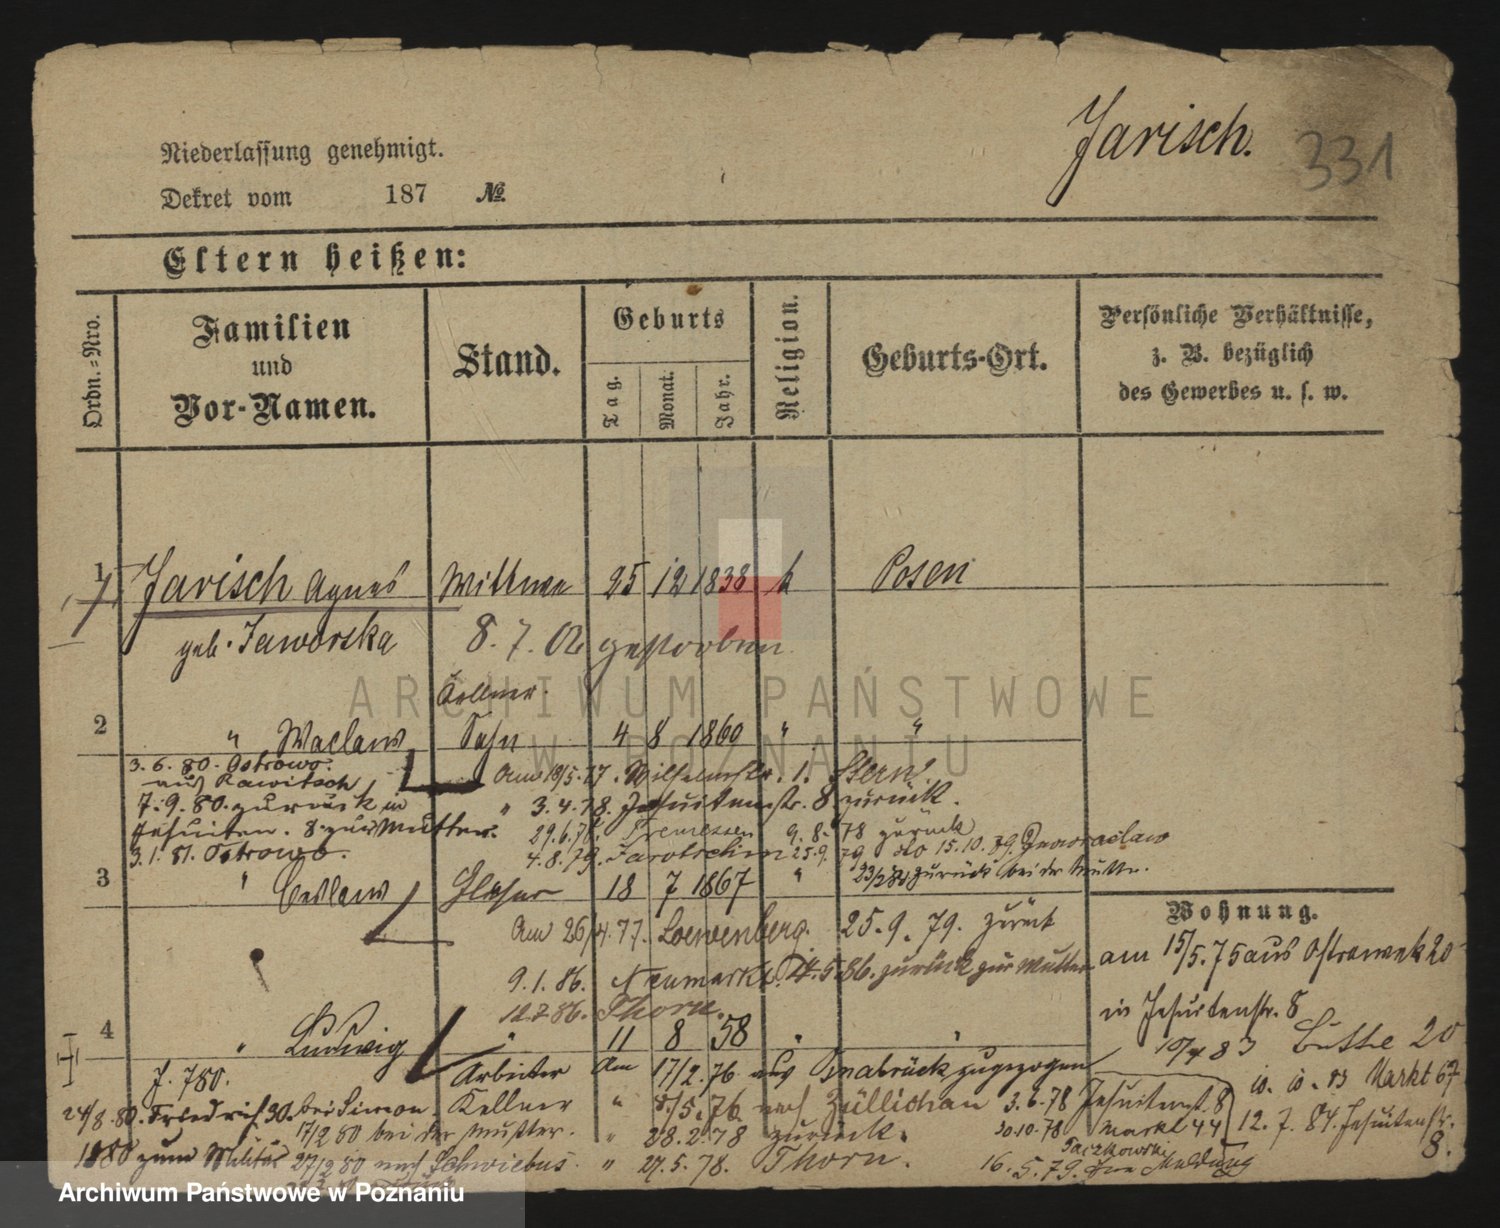 Jarisch.
331
Niederlassung genehmigt.
Dekret vom 187 №
Eltern heißen:
Ordn.-Nro.
Familien und Vor-Namen.
Stand.
Geburts
Tag.
Monat.
Jahr.
Religion.
Geburts-Ort.
Persönliche Verhältnisse,
z. B. bezüglich
des Gewerbes u. s. w.
1 Jarisch Agnes Wittwe 25 12 1838 k Posen
geb. Jaworska 8. 7. 02 gestorben
Kellner.
2 " Waclaw Sohn 4 8 1860 " "
3. 6. 80. Ostrowo.
aus Rawitsch
7. 9. 80. zurück in
Jesuiten. 8 zur Mutter.
3. 1. 81. Ostrowo.
Am 18/5. 77. Wilhelmstr. 1.
" 3. 4. 78. Jesuitenstr. 8 zurück.
29. 6. 78. Tremessen 9. 8. 78 zurück
4. 8. 79. Jarotschin 25. 9. 79 15. 10. 79. Inowraclaw
zurück bei der Mutter.
3 " Ceslaw 18 7 1867 "
Am 26/4. 77. Loewenberg. 25. 9. 79. zurück
9. 1. 86. Neumarkt. 5. 86. zurück zur Mutter
12. 7. 86. Thorn.
Wohnung.
am 15/5. 75 aus Ostrowek 20
in Jesuitenstr. 8
10/4 83 Butte 20
10. 10. 83 Markt 67
12. 7. 84. Jesuitenstr. 8.
4 " Ludwig " 11 8 58 " "
J. 780.
Arbeiter Am 17/2. 76 aus Osnabrück zugezogen
24/8. 80. Friedrich 30. bei Simon. Kellner " 5/5. 76. nach Züllichau 3. 6. 78 Jesuitenst. 8
17/2 80 bei der Mutter. " 28. 2. 78 zurück. 20. 10. 78 Markt 44
1880 zum Militär 27/12 80 nach Schwiebus. " 27. 5. 78. Thorn. 16. 5. 79. Meldung
Taczkowski
ARCHIWUM PAŃSTWOWE
W POZNANIU
Archiwum Państwowe w Poznaniu